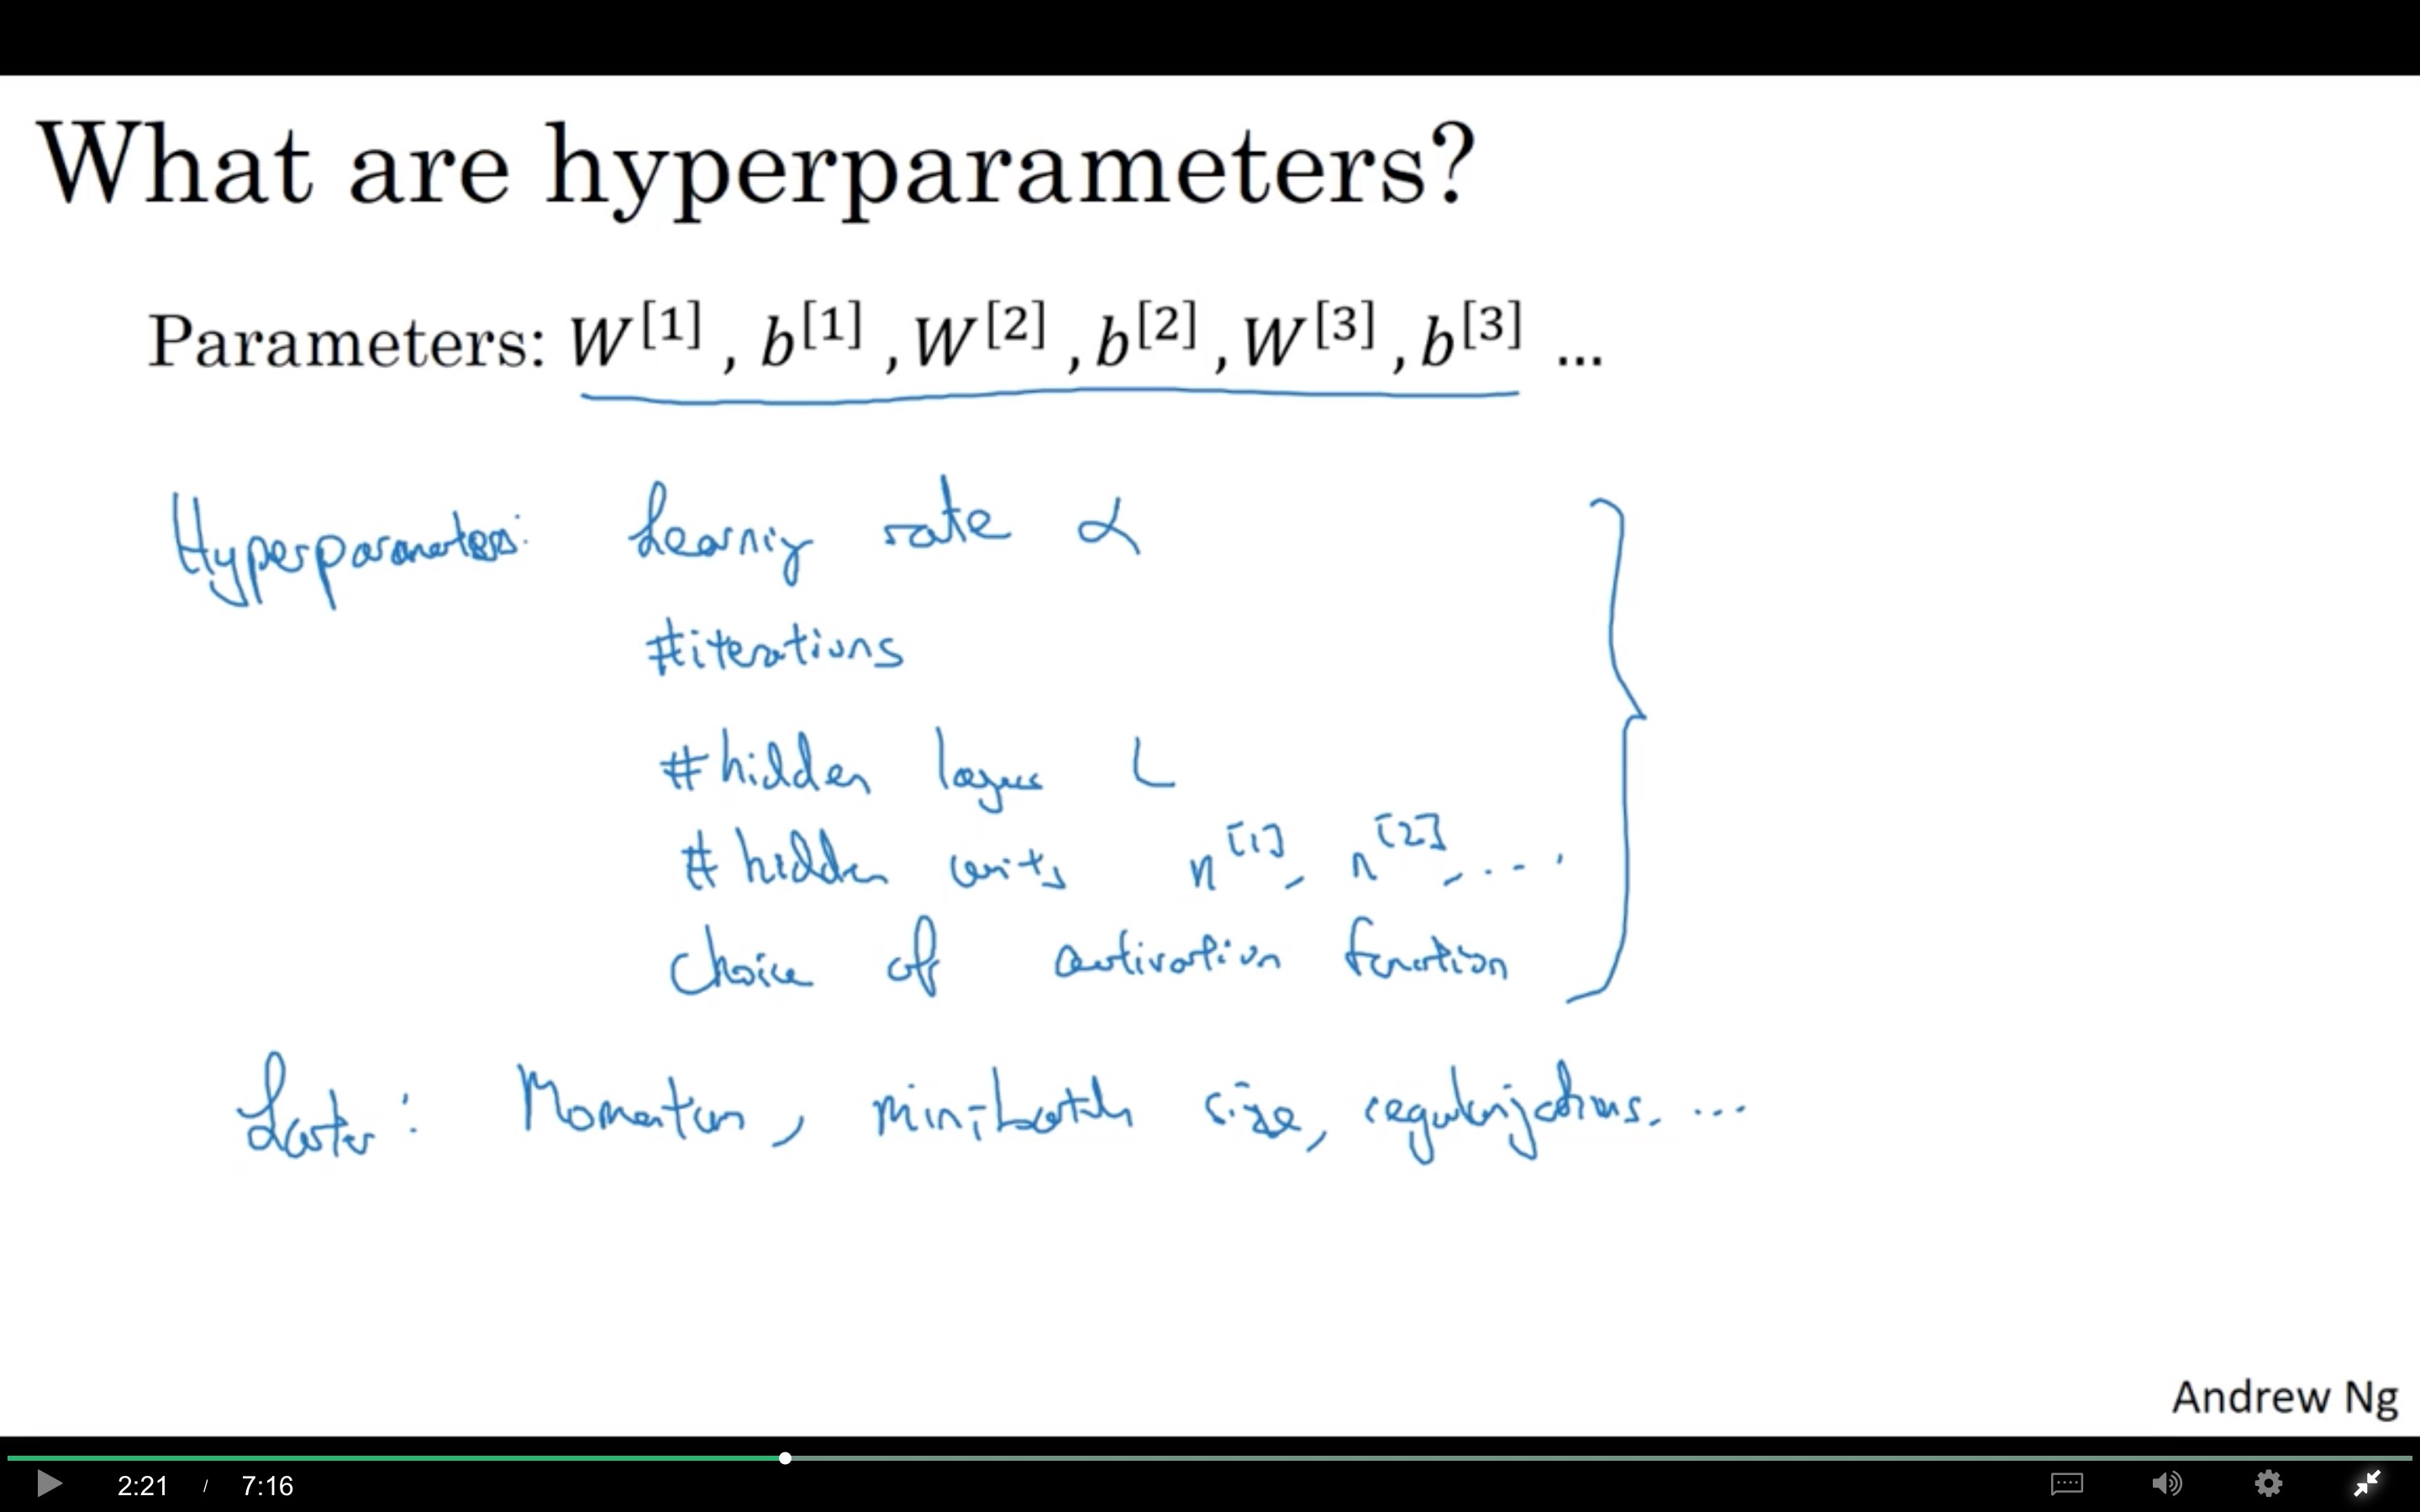 What are hyperparameters?
Parameters: W[1] , b[1] , W[2] , b[2] , W[3] , b[3] ...
Hyperparameters: Learning rate α
#iterations
#hidden layers L
#hidden units n[1], n[2], ....
choice of activation function
Later: Momentum, mini-batch size, regularizations, ...
Andrew Ng
2:21 / 7:16